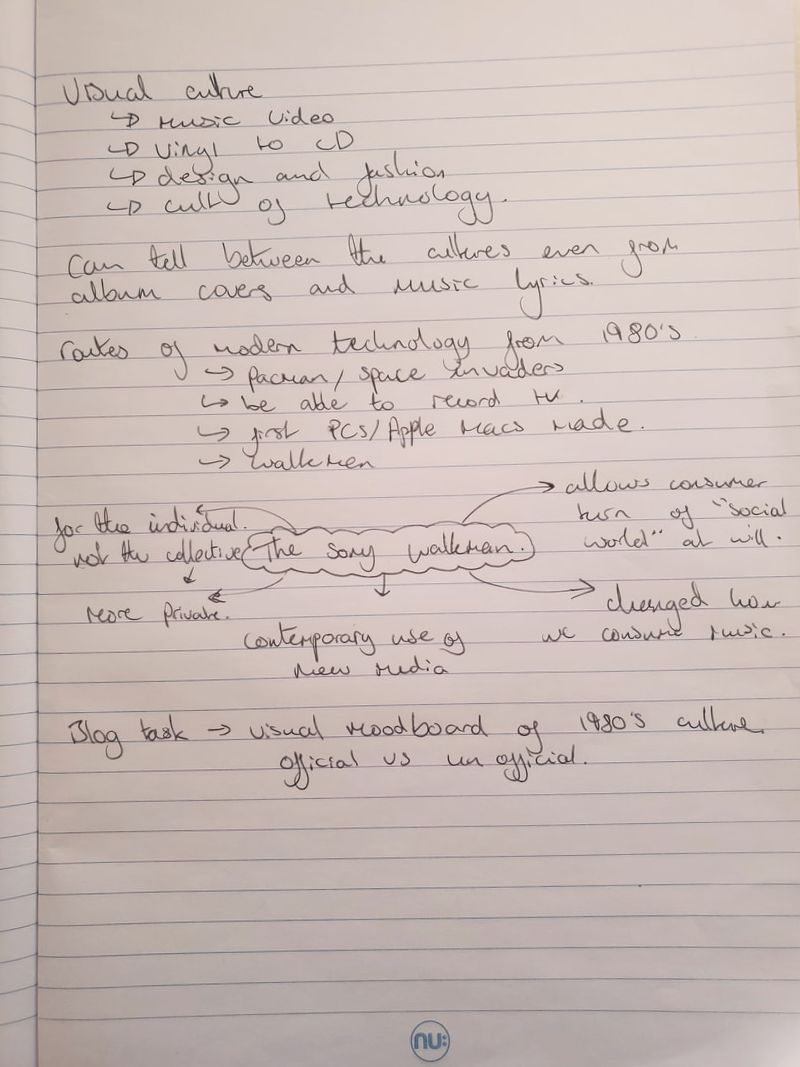 Visual culture
↳ music video
↳ vinyl to CD
↳ design and fashion
↳ cult of technology.
Can tell between the cultures even from
album covers and music lyrics.
routes of modern technology from 1980's
↳ pacman/ space invaders
↳ be able to record tv.
↳ first PCS/Apple Macs made.
↳ walkmen
for the individual.
not the collective
↓
more private.
The Sony walkman.
allows consumer
turn of "social
world" at will.
changed how
we consume music.
contemporary use of
new media
Blog task → visual moodboard of 1980's culture.
official vs un official.
nu: